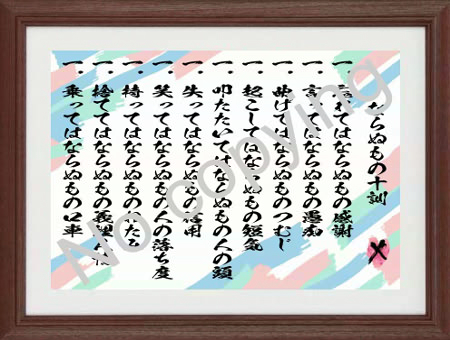 ならぬもの十訓
一．忘れてはならぬもの感謝
一．言ってはならぬもの愚痴
一．曲げてはならぬものつむじ
一．起こしてはならぬもの短気
一．叩たたいてはならぬもの人の頭
一．失ってはならぬもの信用
一．笑ってはならぬもの人の落ち度
一．持ってはならぬもの
一．捨ててはならぬもの義理人情
一．乗ってはならぬもの口車
No copying